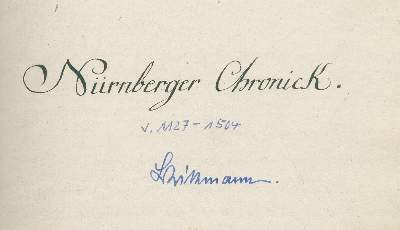 Nürnberger Chronick.
v. 1127-1504